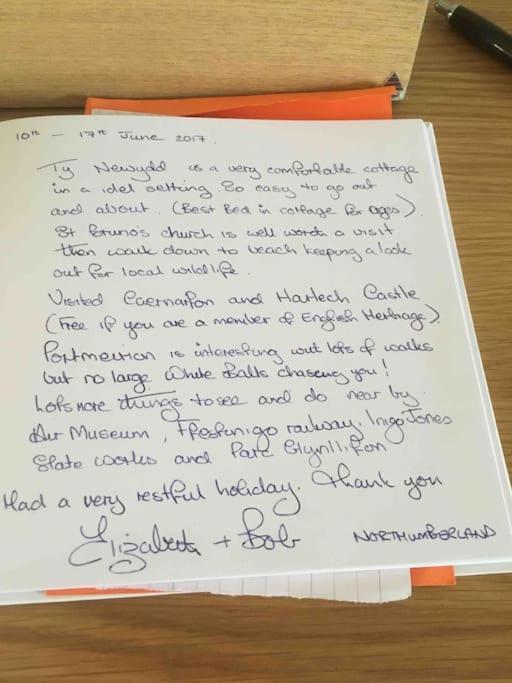 10th - 17th June 2017.
Ty Newydd is a very comfortable cottage
in a idel setting. So easy to go out
and about. (Best Bed in cottage for ages).
St Bruno's church is well worth a visit
then walk down to beach keeping a look
out for local wildlife.
Visited Caernarfon and Harlech Castle
(Free if you are a member of English Heritage).
Portmeirion is interesting wit lots of walks
but no large White Balls chasing you!
Lots more things to see and do near by
Air Museum, Ffestinigo railway, Inigo Jones
Slate works and Parc Glynllifon
Had a very restful holiday. Thank you
Elizabeth + Bob
NORTHUMBERLAND